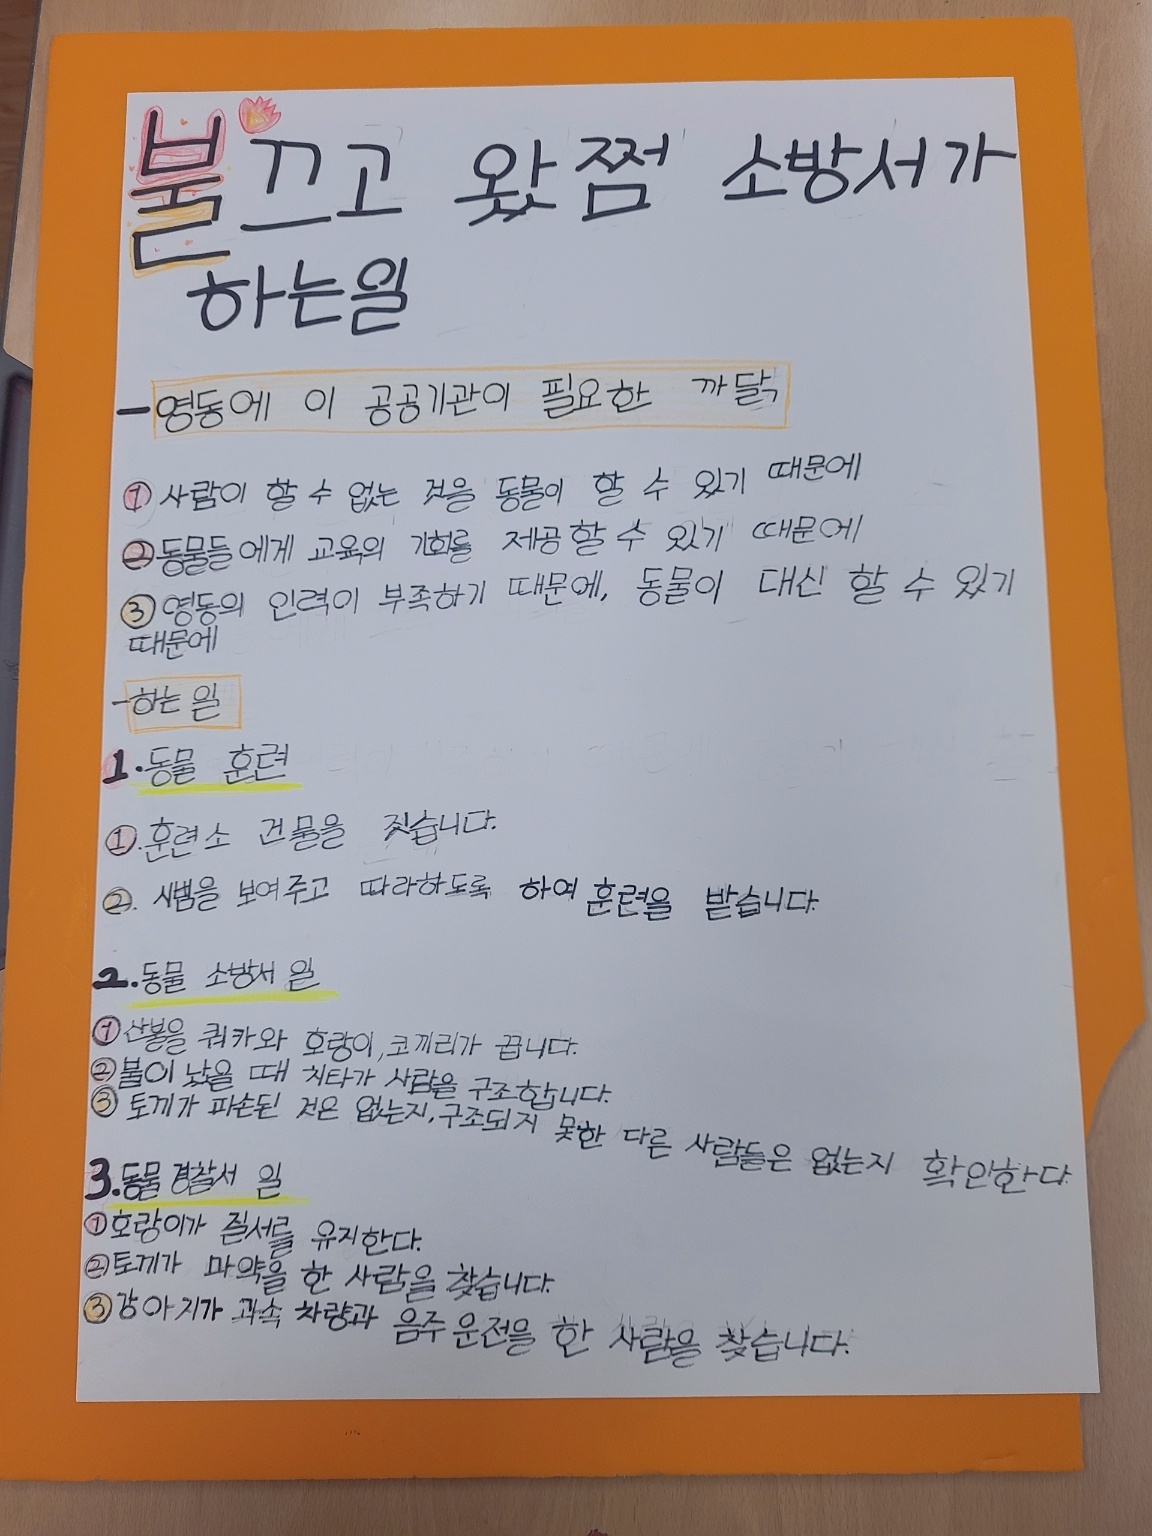 불끄고 왔쩜 소방서가
하는일
-영동에 이 공공기관이 필요한 까닭
① 사람이 할 수 없는 것을 동물이 할 수 있기 때문에
② 동물들에게 교육의 기회를 제공할 수 있기 때문에
③ 영동의 인력이 부족하기 때문에, 동물이 대신 할 수 있기
때문에
-하는 일
1. 동물 훈련
①. 훈련소 건물을 짓습니다.
②. 시범을 보여주고 따라하도록 하여 훈련을 받습니다.
2. 동물 소방서 일
① 산불을 쿼카와 호랑이, 코끼리가 끕니다.
② 불이 났을 때 치타가 사람을 구조합니다.
③ 토끼가 파손된 것은 없는지, 구조되지 못한 다른 사람들은 없는지 확인한다.
3. 동물 경찰서 일
① 호랑이가 질서를 유지한다.
② 토끼가 마약을 한 사람을 찾습니다.
③ 강아지가 과속 차량과 음주 운전을 한 사람을 찾습니다.